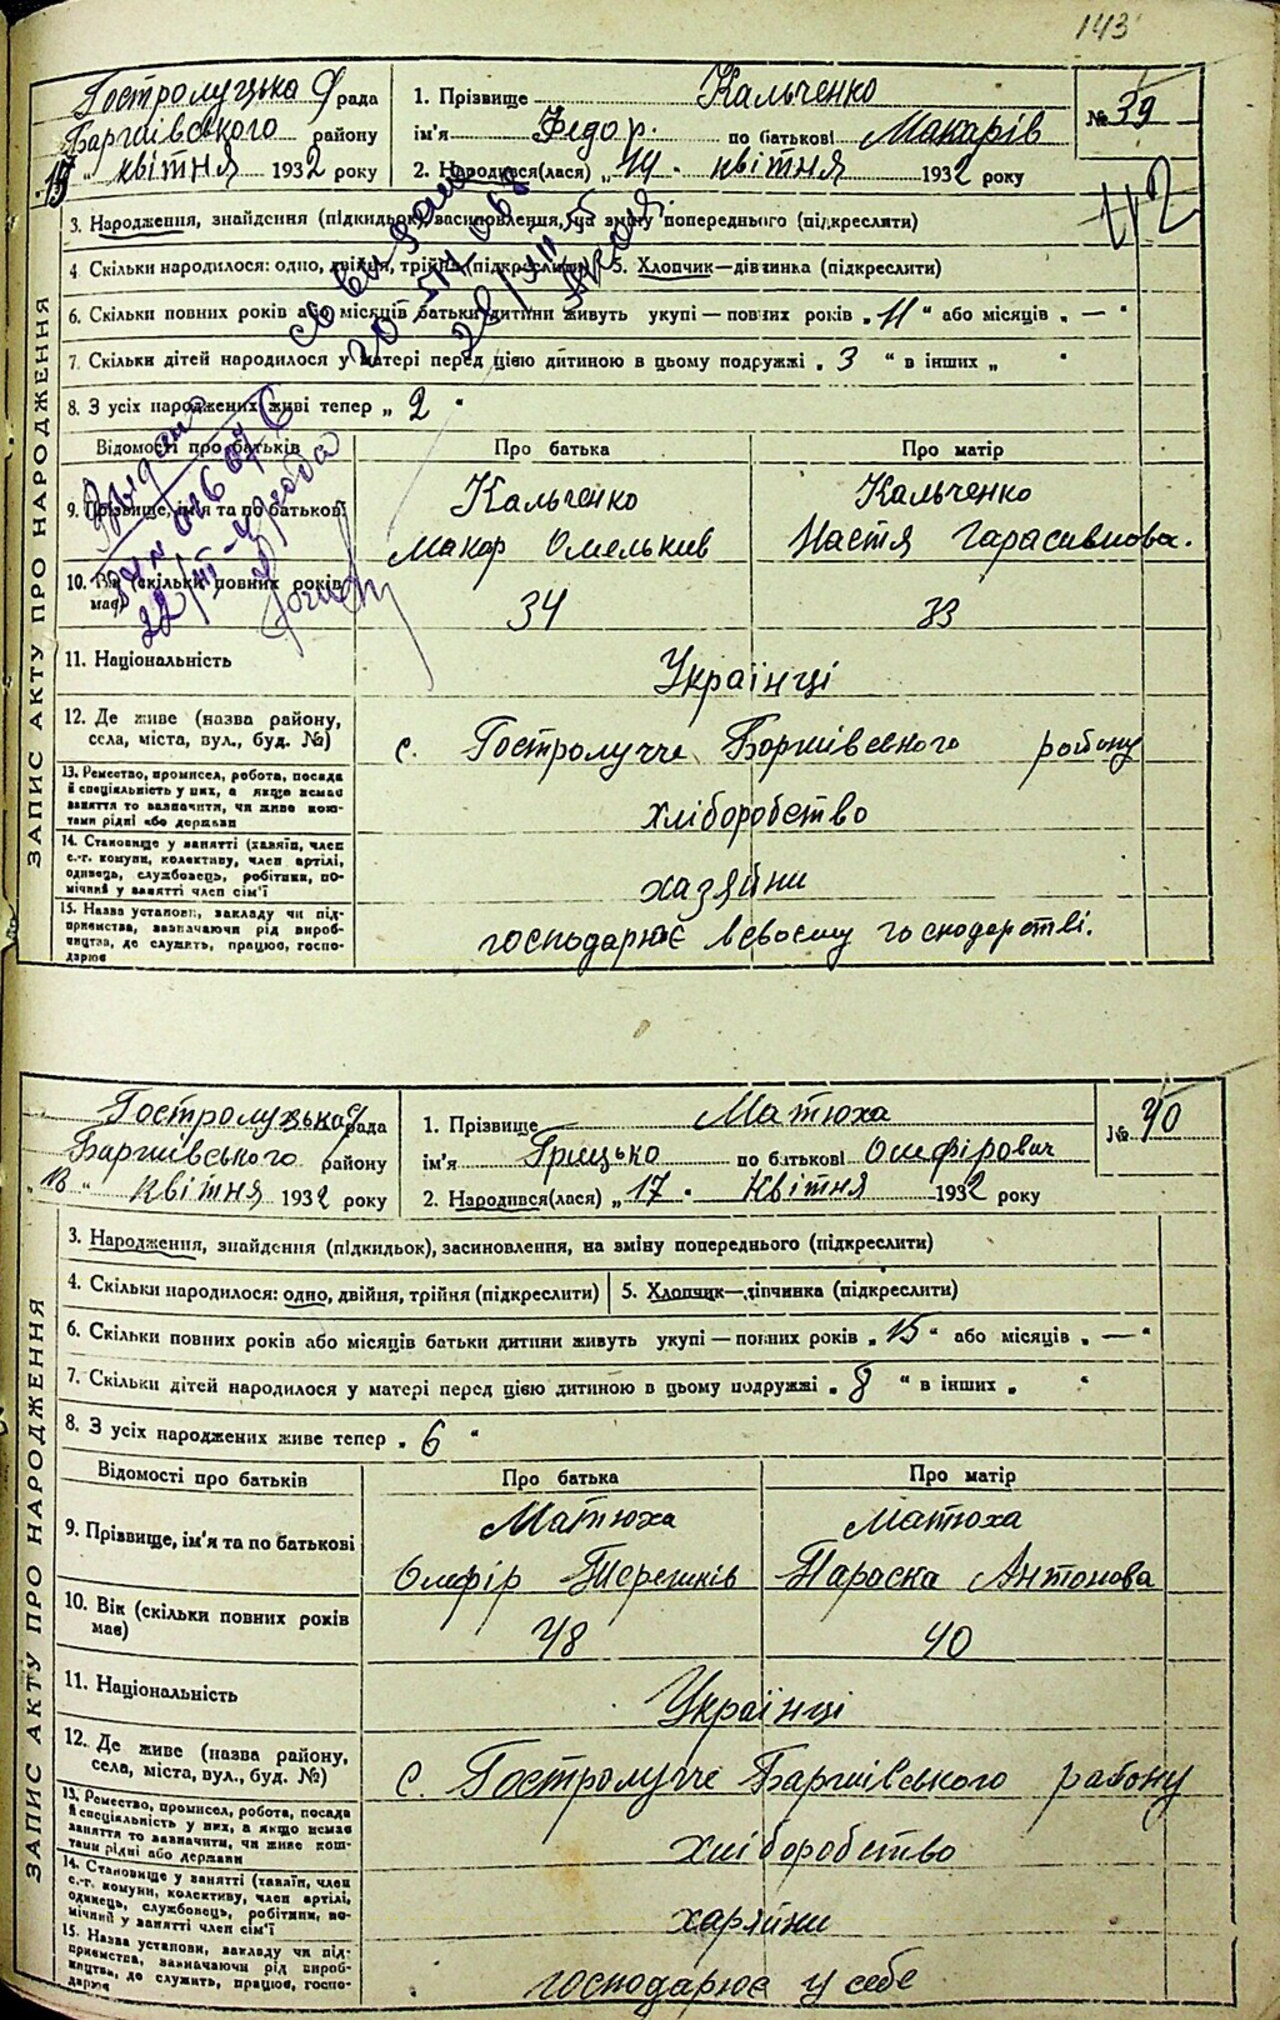 143
Гостролуцька С/рада
Баришівського району
"15" квітня 1932 року
1. Прізвище Кальченко
ім'я Федор. по батькові Макарів
2. Народився(лася) „14" квітня 1932 року
№ 39
ЗАПИС АКТУ ПРО НАРОДЖЕННЯ
3. Народження, знайдення (підкидьок), засиновлення, на зміну попереднього (підкреслити)
4. Скільки народилося: одно, двійня, трійня (підкреслити) 5. Хлопчик—дівчинка (підкреслити)
6. Скільки повних років або місяців батьки дитини живуть укупі — повних років „11" або місяців „—"
7. Скільки дітей народилося у матері перед цією дитиною в цьому подружжі „3" в інших „ "
8. З усіх народжених живі тепер „2"
Відомості про батьків Про батька Про матір
9. Прізвище, ім'я та по батькові
Кальченко Кальченко
Макар Омельків Настя Гарасимова.
10. Вік (скільки повних років має)
34 33
11. Національність Українці
12. Де живе (назва району,
села, міста, вул., буд. №)
с. Гостролучче Баришівського району
13. Ремество, промисел, робота, посада
й спеціяльність у них, а якщо немає
заняття то зазначити, чи живе кош-
тами рідні або держави
хліборобство
14. Становище у занятті (хазяїн, член
с.-г. комуни, колективу, член артілі,
одинець, службовець, робітник, по-
мічний у занятті член сім'ї
хазяйни
15. Назва установи, закладу чи під-
приємства, зазначаючи рід вироб-
ництва, де служить, працює, госпо-
дарює
господарює в своєму господарстві.
Гостролуцька С/рада
Баришівського району
"18" квітня 1932 року
1. Прізвище Матюха
ім'я Грицько по батькові Олефірович
2. Народився(лася) „17" квітня 1932 року
№ 40
ЗАПИС АКТУ ПРО НАРОДЖЕННЯ
3. Народження, знайдення (підкидьок), засиновлення, на зміну попереднього (підкреслити)
4. Скільки народилося: одно, двійня, трійня (підкреслити) 5. Хлопчик—дівчинка (підкреслити)
6. Скільки повних років або місяців батьки дитини живуть укупі — повних років „15" або місяців „—"
7. Скільки дітей народилося у матері перед цією дитиною в цьому подружжі „8" в інших „ "
8. З усіх народжених живе тепер „6"
Відомості про батьків Про батька Про матір
9. Прізвище, ім'я та по батькові
Матюха Матюха
Олефір Терешків Параска Антонова
10. Вік (скільки повних років
має)
48 40
11. Національність Українці
12. Де живе (назва району,
села, міста, вул., буд. №)
с. Гостролучче Баришівського району
13. Ремество, промисел, робота, посада
й спеціяльність у них, а якщо немає
заняття то зазначити, чи живе кош-
тами рідні або держави
хліборобство
14. Становище у занятті (хазяїн, член
с.-г. комуни, колективу, член артілі,
одинець, службовець, робітник, по-
мічний у занятті член сім'ї
хазяйни
15. Назва установи, закладу чи під-
приємства, зазначаючи рід вироб-
ництва, де служить, працює, госпо-
дарює
господарює у себе